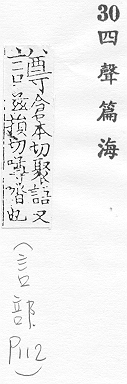 30 四聲篇海
譐 本切聚語又
茲損切噂也
(言部 P112)